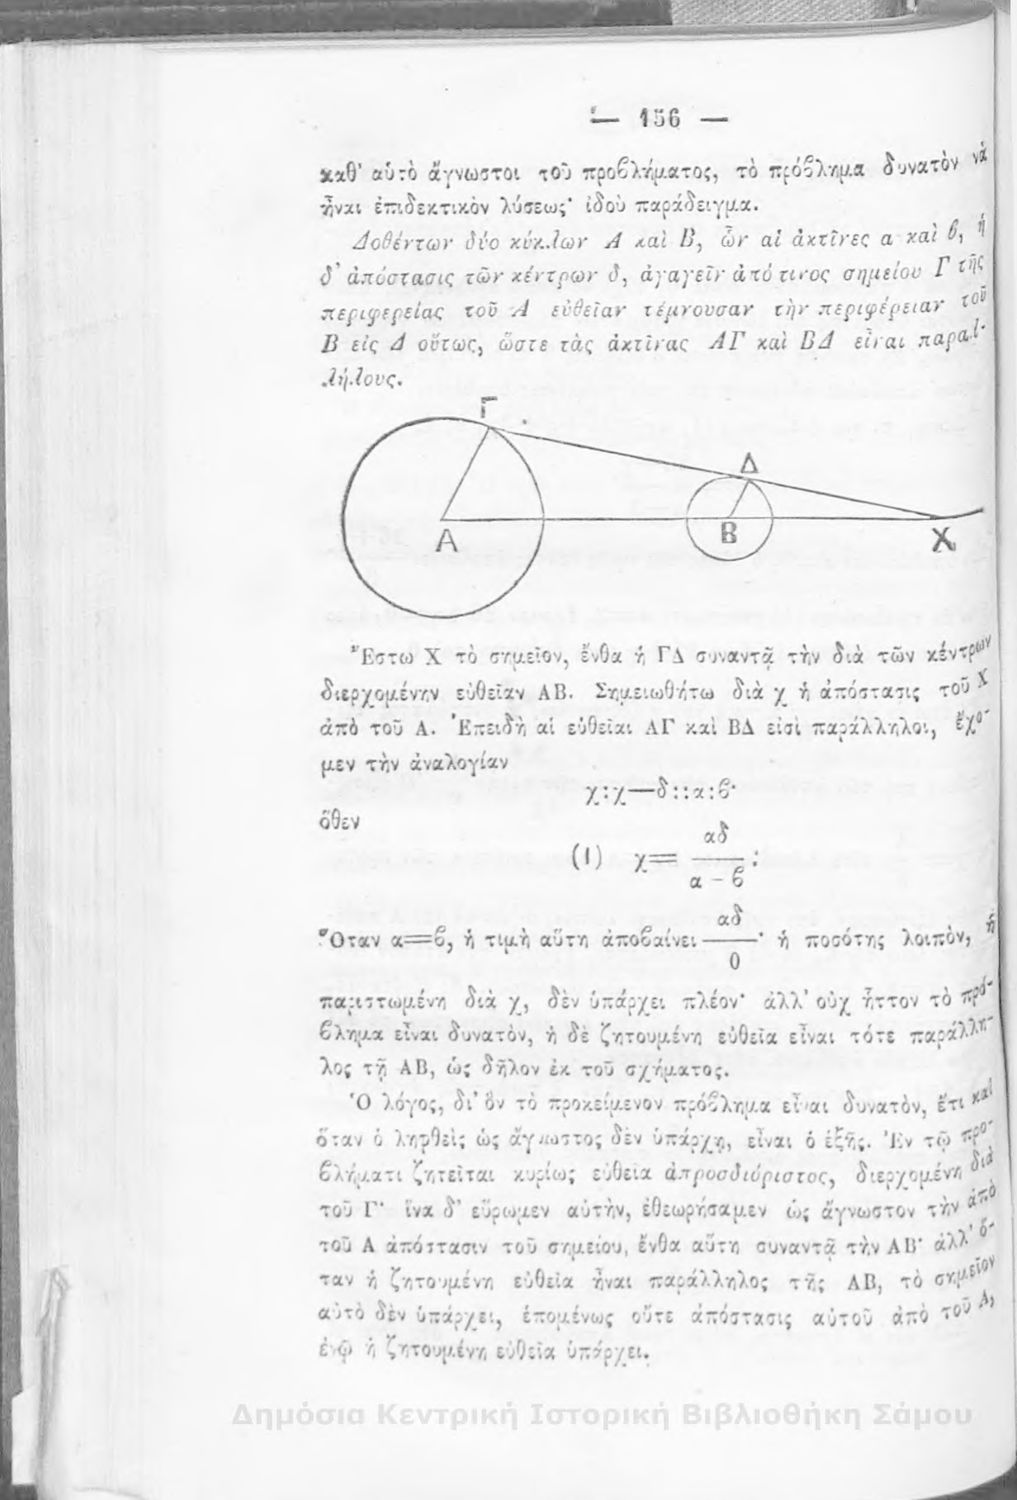 — 156 —
καθ' αὑτὸ ἄγνωστοι τοῦ προβλήματος, τὸ πρόβλημα δυνατὸν νὰ
ἦναι ἐπιδεκτικὸν λύσεως· ἰδοὺ παράδειγμα.
Δοθέντων δύο κύκλων Α καὶ Β, ὧν αἱ ἀκτῖνες α καὶ β, ἡ
δ' ἀπόστασις τῶν κέντρων δ, ἀγαγεῖν ἀπό τινος σημείου Γ τῆς
περιφερείας τοῦ Α εὐθεῖαν τέμνουσαν τὴν περιφέρειαν τοῦ
Β εἰς Δ οὕτως, ὥστε τὰς ἀκτῖνας ΑΓ καὶ ΒΔ εἶναι παραλ-
λήλους.
Γ
Δ
Α
Β
Χ
Ἔστω Χ τὸ σημεῖον, ἔνθα ἡ ΓΔ συναντᾷ τὴν διὰ τῶν κέντρων
διερχομένην εὐθεῖαν ΑΒ. Σημειωθήτω διὰ χ ἡ ἀπόστασις τοῦ Χ
ἀπὸ τοῦ Α. Ἐπειδὴ αἱ εὐθεῖαι ΑΓ καὶ ΒΔ εἰσὶ παράλληλοι, ἔχο-
μεν τὴν ἀναλογίαν
χ:χ—δ::α:β·
ὅθεν
(1) χ= αδ / α - β :
Ὅταν α=β, ἡ τιμὴ αὕτη ἀποβαίνει αδ / 0 · ἡ ποσότης λοιπὸν, ἡ
παριστωμένη διὰ χ, δὲν ὑπάρχει πλέον· ἀλλ' οὐχ ἧττον τὸ πρό-
βλημα εἶναι δυνατὸν, ἡ δὲ ζητουμένη εὐθεῖα εἶναι τότε παράλλη-
λος τῇ ΑΒ, ὡς δῆλον ἐκ τοῦ σχήματος.
Ὁ λόγος, δι' ὃν τὸ προκείμενον πρόβλημα εἶναι δυνατὸν, ἔτι καὶ
ὅταν ὁ ληφθεὶς ὡς ἄγνωστος δὲν ὑπάρχῃ, εἶναι ὁ ἑξῆς. Ἐν τῷ προ-
βλήματι ζητεῖται κυρίως εὐθεῖα ἀπροσδιόριστος, διερχομένη διὰ
τοῦ Γ· ἵνα δ' εὕρωμεν αὐτὴν, ἐθεωρήσαμεν ὡς ἄγνωστον τὴν ἀπὸ
τοῦ Α ἀπόστασιν τοῦ σημείου, ἔνθα αὕτη συναντᾷ τὴν ΑΒ· ἀλλ' ὅ-
ταν ἡ ζητουμένη εὐθεῖα ἦναι παράλληλος τῆς ΑΒ, τὸ σημεῖον
αὐτὸ δὲν ὑπάρχει, ἑπομένως οὔτε ἀπόστασις αὐτοῦ ἀπὸ τοῦ Α,
ἐνῷ ἡ ζητουμένη εὐθεῖα ὑπάρχει.
Δημόσια Κεντρική Ιστορική Βιβλιοθήκη Σάμου